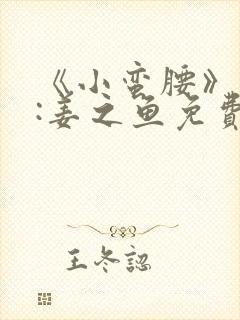 《小蛮腰》
:姜之鱼免費
王冬認